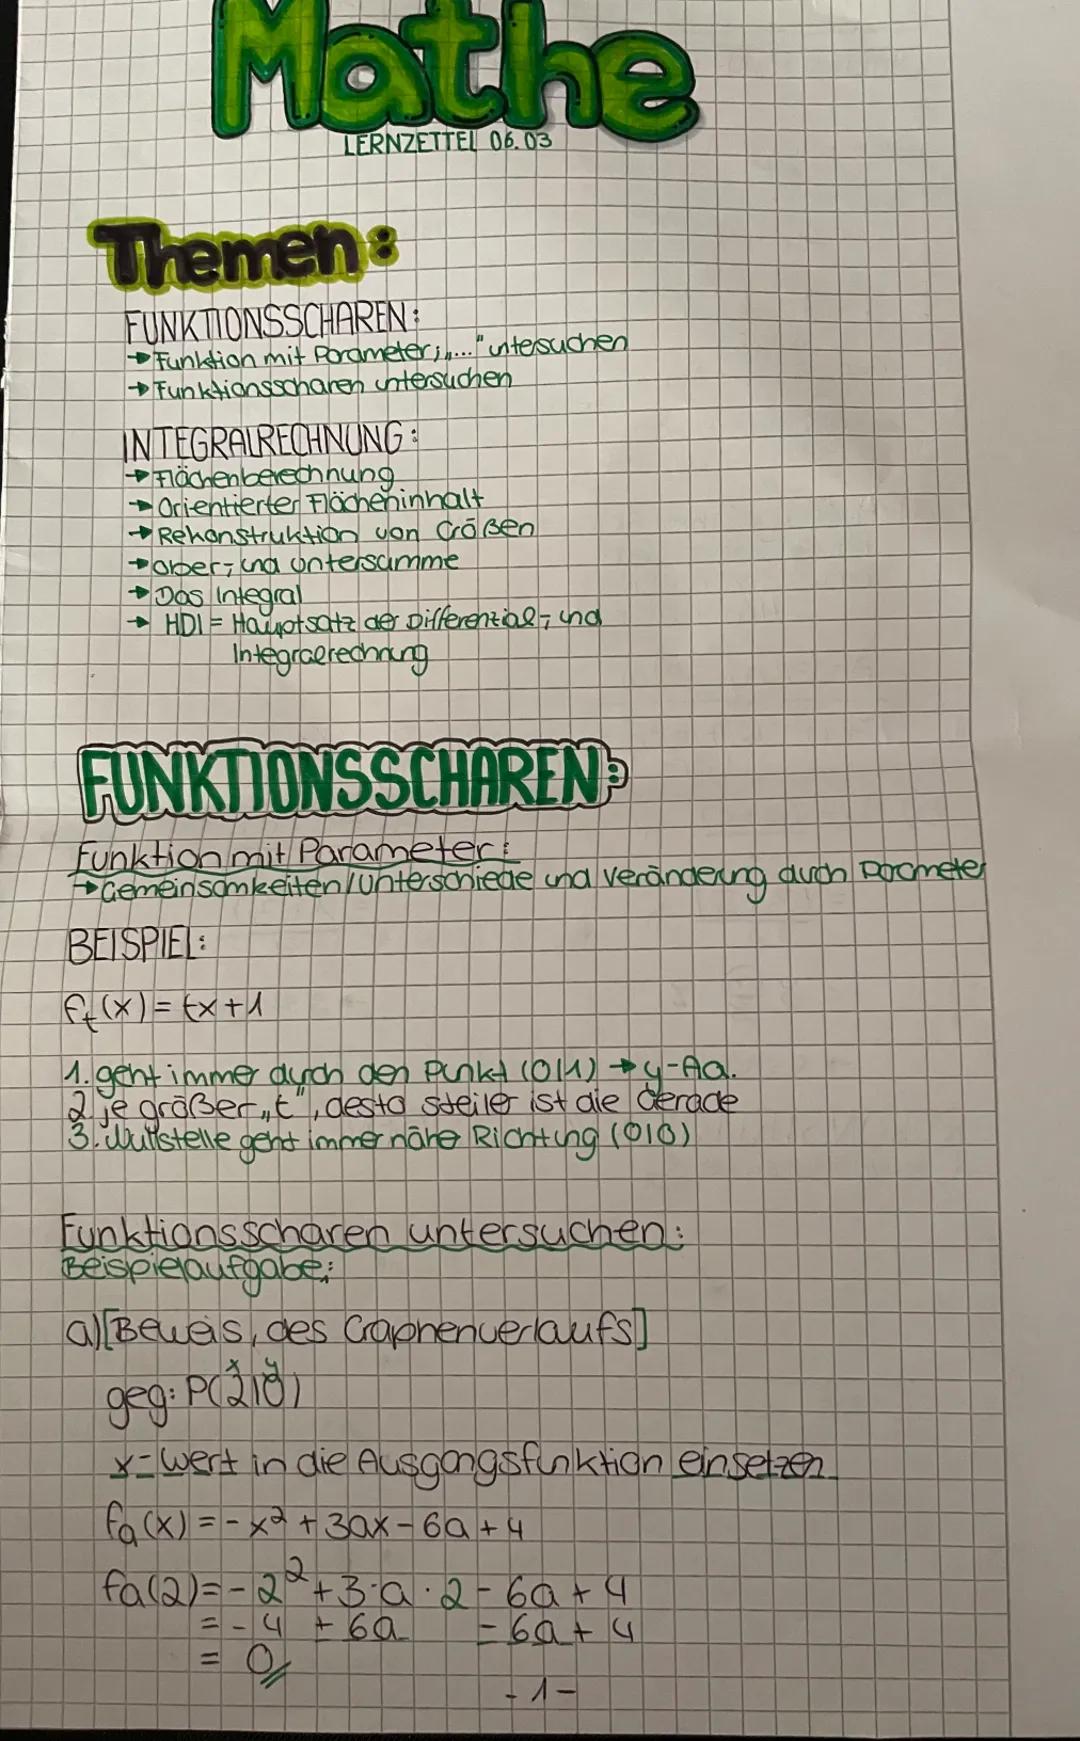 Mathe
LERNZETTEL 06.03
Themen:
FUNKTIONSSCHAREN:
→ Funktion mit Parameter; „..." untersuchen
→ Funktionsscharen untersuchen
INTEGRALRECHNUNG:
→ Flächenberechnung
→ Orientierter Flächeninhalt
→ Rekonstruktion von Größen
→ Ober- und Untersumme
→ Das Integral
→ HDI = Hauptsatz der Differential- und
Integralrechnung
FUNKTIONSSCHAREN:
Funktion mit Parameter:
→ Gemeinsamkeiten/Unterschiede und Veränderung durch Parameter
BEISPIEL:
fₜ(x) = tx + 1
1. geht immer durch den Punkt (0|1) → y-Aa.
2. je größer „t", desto steiler ist die Gerade
3. Nullstelle geht immer nähe Richtung (0|0)
Funktionsscharen untersuchen:
Beispielaufgabe:
a) [Beweis, des Graphenverlaufs]
x y
geg: P(2|0)
x-Wert in die Ausgangsfunktion einsetzen
fₐ(x) = - x² + 3ax - 6a + 4
fa(2) = - 2² + 3·a·2 - 6a + 4
= - 4 + 6a - 6a + 4
= 0
- 1 -